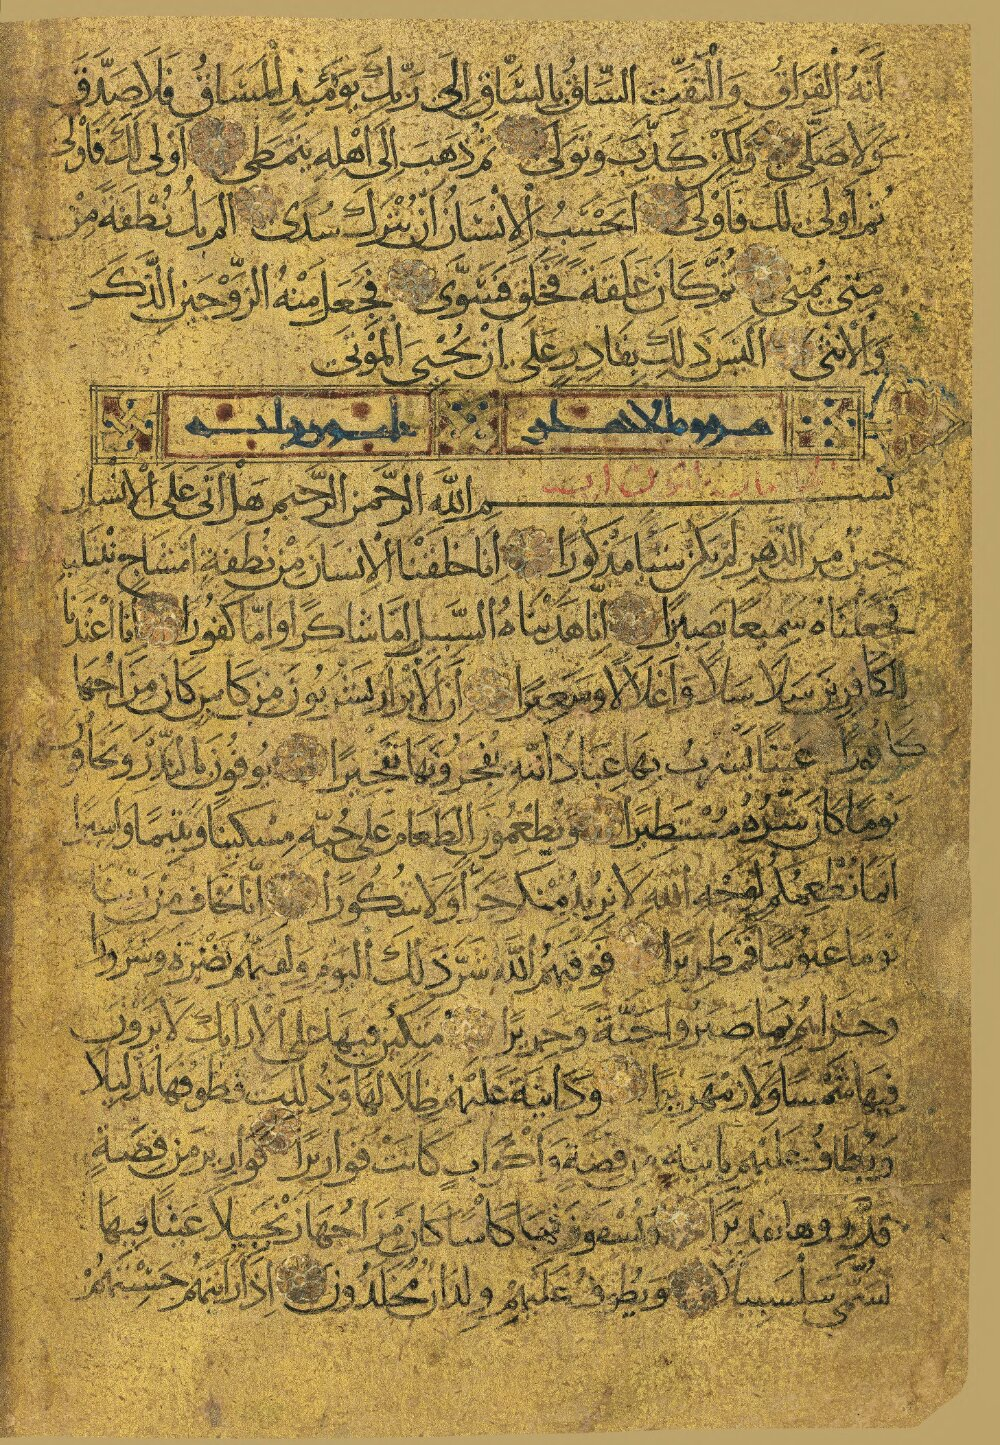 أَنَّهُ الْفِرَاقُ وَالْتَفَّتِ السَّاقُ بِالسَّاقِ إِلَى رَبِّكَ يَوْمَئِذٍ الْمَسَاقُ فَلَا صَدَّقَ
وَلَا صَلَّى وَلَكِنْ كَذَّبَ وَتَوَلَّى ثُمَّ ذَهَبَ إِلَى أَهْلِهِ يَتَمَطَّى أَوْلَى لَكَ فَأَوْلَى
ثُمَّ أَوْلَى لَكَ فَأَوْلَى أَيَحْسَبُ الْإِنْسَانُ أَنْ يُتْرَكَ سُدًى أَلَمْ يَكُ نُطْفَةً مِنْ
مَنِيٍّ يُمْنَى ثُمَّ كَانَ عَلَقَةً فَخَلَقَ فَسَوَّى فَجَعَلَ مِنْهُ الزَّوْجَيْنِ الذَّكَرَ
وَالْأُنْثَى أَلَيْسَ ذَلِكَ بِقَادِرٍ عَلَى أَنْ يُحْيِيَ الْمَوْتَى
بسم الله الرَّحْمَنِ الرَّحِيمِ هَلْ أَتَى عَلَى الْإِنْسَانِ
حِينٌ مِنَ الدَّهْرِ لَمْ يَكُنْ شَيْئًا مَذْكُورًا إِنَّا خَلَقْنَا الْإِنْسَانَ مِنْ نُطْفَةٍ أَمْشَاجٍ نَبْتَلِيهِ
فَجَعَلْنَاهُ سَمِيعًا بَصِيرًا إِنَّا هَدَيْنَاهُ السَّبِيلَ إِمَّا شَاكِرًا وَإِمَّا كَفُورًا إِنَّا أَعْتَدْنَا
لِلْكَافِرِينَ سَلَاسِلًا وَأَغْلَالًا وَسَعِيرًا إِنَّ الْأَبْرَارَ يَشْرَبُونَ مِنْ كَأْسٍ كَانَ مِزَاجُهَا
كَافُورًا عَيْنًا يَشْرَبُ بِهَا عِبَادُ اللَّهِ يُفَجِّرُونَهَا تَفْجِيرًا يُوفُونَ بِالنَّذْرِ وَيَخَافُونَ
يَوْمًا كَانَ شَرُّهُ مُسْتَطِيرًا وَيُطْعِمُونَ الطَّعَامَ عَلَى حُبِّهِ مِسْكِينًا وَيَتِيمًا وَأَسِيرًا
إِنَّمَا نُطْعِمُكُمْ لِوَجْهِ اللَّهِ لَا نُرِيدُ مِنْكُمْ جَزَاءً وَلَا شُكُورًا إِنَّا نَخَافُ مِنْ رَبِّنَا
يَوْمًا عَبُوسًا قَمْطَرِيرًا فَوَقَاهُمُ اللَّهُ شَرَّ ذَلِكَ الْيَوْمِ وَلَقَّاهُمْ نَضْرَةً وَسُرُورًا
وَجَزَاهُمْ بِمَا صَبَرُوا جَنَّةً وَحَرِيرًا مُتَّكِئِينَ فِيهَا عَلَى الْأَرَائِكِ لَا يَرَوْنَ
فِيهَا شَمْسًا وَلَا زَمْهَرِيرًا وَدَانِيَةً عَلَيْهِمْ ظِلَالُهَا وَذُلِّلَتْ قُطُوفُهَا تَذْلِيلًا
وَيُطَافُ عَلَيْهِمْ بِآنِيَةٍ مِنْ فِضَّةٍ وَأَكْوَابٍ كَانَتْ قَوَارِيرَا قَوَارِيرَ مِنْ فِضَّةٍ
قَدَّرُوهَا تَقْدِيرًا وَيُسْقَوْنَ فِيهَا كَأْسًا كَانَ مِزَاجُهَا زَنْجَبِيلًا عَيْنًا فِيهَا
تُسَمَّى سَلْسَبِيلًا وَيَطُوفُ عَلَيْهِمْ وِلْدَانٌ مُخَلَّدُونَ إِذَا رَأَيْتَهُمْ حَسِبْتَهُمْ